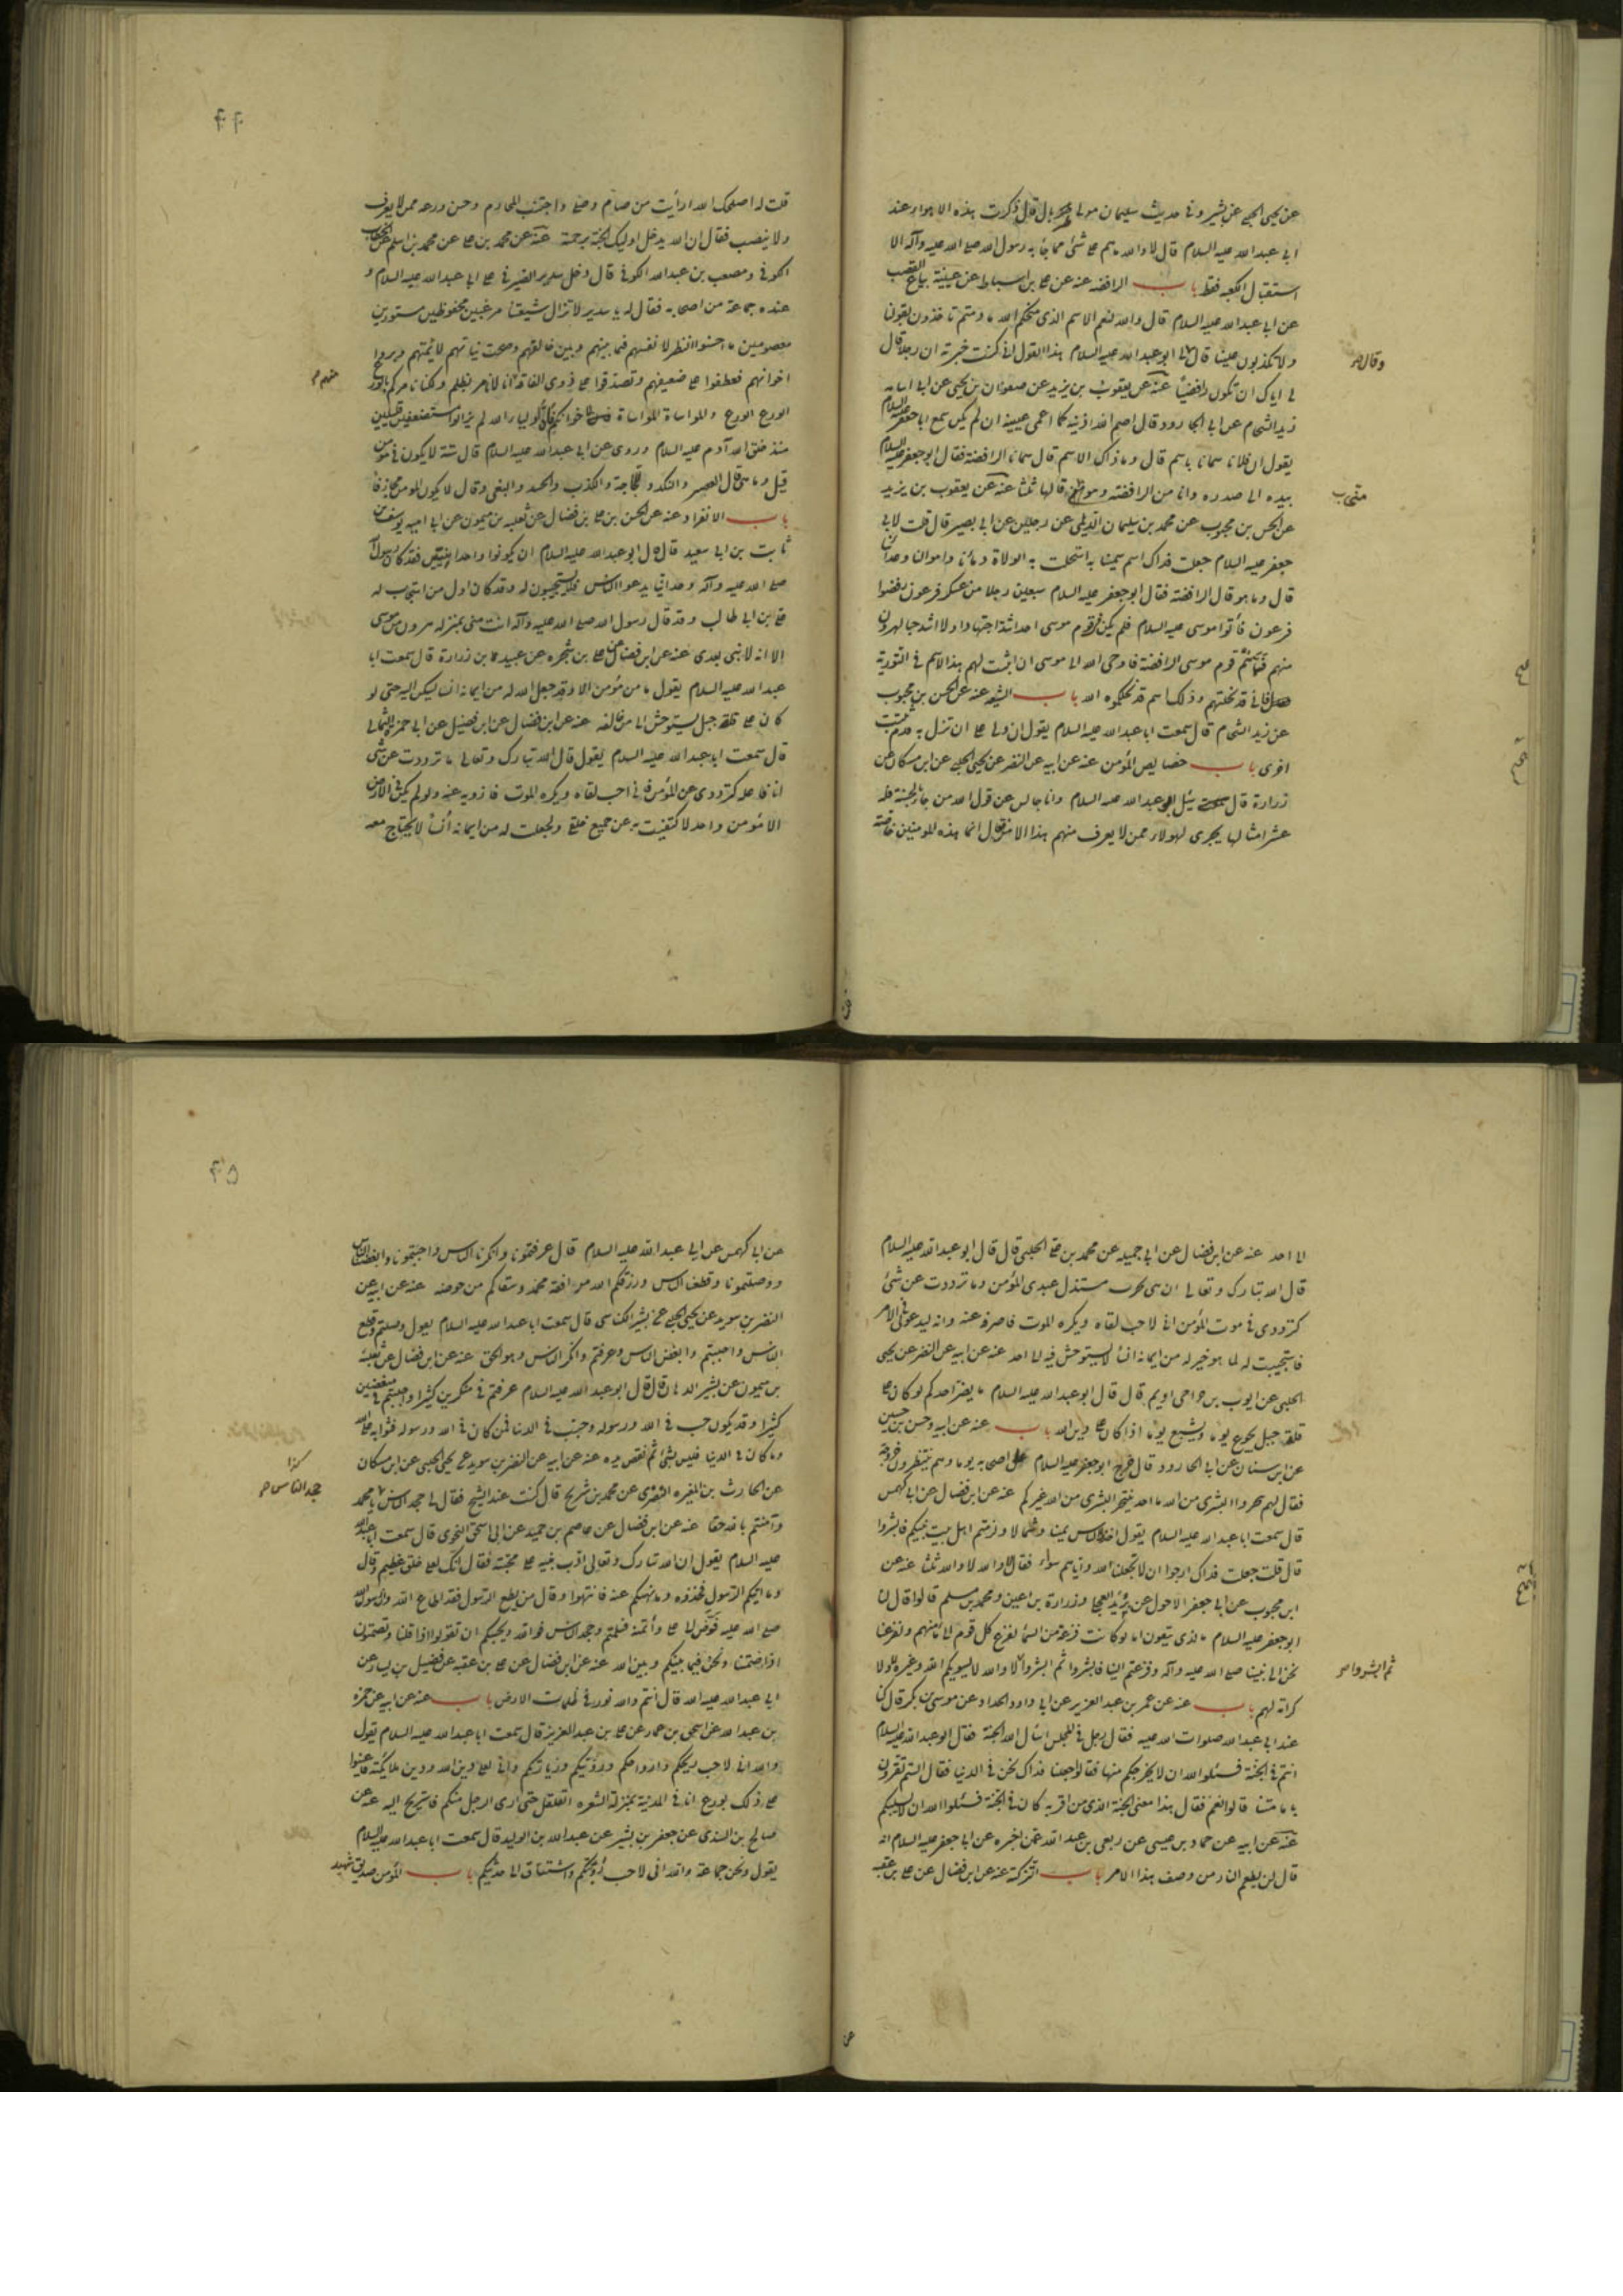 عن يحيى الحلبي عن بشير وفي حديث سليمان مولى طربال قال ذكرت هذه الاهواء عند
ابي عبد الله عليه السلام قال لا والله ما هم على شئ مما جاء به رسول الله صلى الله عليه وآله الا
استقبال الكعبه فقط باب الرافضه عنه عن على بن اسباط عن عيينة بياع القصب
عن ابي عبد الله عليه السلام قال والله لنعم الاسم الذى منحكم الله ما دمتم تاخذون بقولنا
ولا تكذبون علينا قال لى ابو عبد الله عليه السلام هذا القول انى كنت خبرته ان رجلا قال
وقال
لى اياك ان تكون رافضيا عنه عن يعقوب بن يزيد عن صفوان بن يحيى عن ابى اسامه
زيد الشحام عن ابى الجارود قال اصم الله اذنيه كما اعمى عينيه ان لم يكن سمع ابا جعفر عليه السلام
يقول ان فلانا سمانا باسم قال وما ذاك الاسم قال سمانا الرافضة فقال ابو جعفر عليه السلام
بيده الى صدره وانا من الرافضة وهو منى قالها ثلثا عنه عن يعقوب بن يزيد
عن الحسن بن محبوب عن محمد بن سليمان الديلمى عن رجلين عن ابى بصير قال قلت لابى
جعفر عليه السلام جعلت فداك اسم سمينا به استحلت به الولاة دمائنا واموالنا وعذابنا
قال وما هو قال الرافضة فقال ابو جعفر عليه السلام سبعين رجلا من عسكر فرعون رفضوا
فرعون فأتوا موسى عليه السلام فلم يكن فى قوم موسى احد اشد اجتهادا ولا اشد حبا لهرون
منهم فسماهم قوم موسى الرافضة فاوحى الله الى موسى ان اثبت لهم هذا الاسم فى التورية
فانى قد نحلتهم وذلك اسم قد نحلكموه الله باب الشيعه عنه عن الحسن بن محبوب
عن زيد الشحام قال سمعت ابا عبد الله عليه السلام يقول ان ولى على ان تزل به قدم تثبت
اخرى باب خصايص المؤمن عنه عن ابيه عن النضر عن يحيى الحلبى عن ابن مسكان عن
زرارة قال سئل ابو عبد الله عليه السلام وانا جالس عن قول الله من جاء بالحسنة فله
عشر امثالها يجرى لهولاء ممن لا يعرف منهم هذا الامر فقال انما هذه للمومنين خاصة
قلت له اصلحك الله ارأيت من صام وصلى واجتنب المحارم وحسن ورعه ممن لا يعرف
ولا ينصب فقال ان الله يدخل اوليك الجنة برحمته عنه عن محمد بن على عن محمد بن اسلم عن الخطاب
الكوفى ومصعب بن عبد الله الكوفى قال دخل سدير الصيرفى على ابى عبد الله عليه السلام و
عنده جماعة من اصحابه فقال له يا سدير لا تزال شيعتنا مرعيين محفوظين مستورين
معصومين ما احسنوا النظر لانفسهم فيما بينهم وبين خالقهم وصحت نياتهم لائمتهم وبروا
اخوانهم فعطفوا على ضعيفهم وتصدقوا على ذوى الفاقة انا لا نامر بظلم ولكنا نامركم بالورع
الورع الورع والمواساة المواساة لاخوانكم فان اولياء الله لم يزالوا مستضعفين قليلين
منذ خلق الله آدم عليه السلام وروى عن ابى عبد الله عليه السلام قال ستة لا يكون فى مؤمن
قيل وما هى قال العسر والنكد واللجاجة والكذب والحسد والبغى وقال لا يكون المومن مجازفا
باب الانفراد عنه عن الحسن بن على بن فضال عن ثعلبه بن ميمون عن ابى اميه يوسف بن
ثابت بن ابى سعيد قال قال ابو عبد الله عليه السلام ان تكونوا وحدانيين فقد كان رسول الله
صلى الله عليه وآله وحدانى يدعو الناس فلا يستجيبون له وقد كان اول من استجاب له
على بن ابى طالب وقد قال رسول الله صلى الله عليه وآله انت منى بمنزله هرون من موسى
الا انه لا نبى بعدى عنه عن ابن فضال عن على بن شجره عن عبيد بن زرارة قال سمعت ابا
عبد الله عليه السلام يقول ما من مؤمن الا وقد جعل الله له من ايمانه انسا يسكن اليه حتى لو
كان على قلة جبل يستوحش الى من خالفه عنه عن ابن فضال عن ابن فضيل عن ابى حمزه الثمالى
قال سمعت ابا عبد الله عليه السلام يقول قال الله تبارك وتعالى ما ترددت عن شئ
انا فاعله كترددى عن المؤمن فانى احب لقاه ويكره الموت فازويه عنه ولو لم يكن فى الارض
الا مؤمن واحد لاكتفيت به عن جميع خلقى ولجعلت له من ايمانه انسا لا يحتاج معه
الى احد عنه عن ابن فضال عن ابى جميله عن محمد بن على الحلبى قال قال ابو عبد الله عليه السلام
قال الله تبارك وتعالى ليأذن بحرب مستذل عبدى المؤمن وما ترددت عن شئ
كترددى فى موت المؤمن انى لاحب لقاه ويكره الموت فاصرفه عنه وانه ليدعونى فى الامر
فاستجيب له لما هو خير له من ايمانه انسا لا يستوحش فيه الى احد عنه عن ابيه عن النضر عن يحيى
الحلبى عن ايوب بن حر اخى اديم قال قال ابو عبد الله عليه السلام ما يضر احدكم لو كان على
قلة جبل يجوع يوما ويشبع يوما اذا كان على دين الله باب عنه عن ابيه وحسن بن حسين
عن ابن سنان عن ابى الجارود قال خرج ابو جعفر عليه السلام على اصحابه يوما وهم ينتظرون خروجه
فقال لهم تنجزوا البشرى من الله ما احد يتنجز البشرى من الله غيركم عنه عن ابن فضال عن ابى كهمس
قال سمعت ابا عبد الله عليه السلام يقول اخذ الناس يمينا وشمالا ولزمتم اهل بيت نبيكم فابشروا
قال قلت جعلت فداك ارجوا ان لا يجعلنا الله واياهم سواء فقال لا والله لا والله ثلثا عنه عن
ابن محبوب عن ابى جعفر الاحول عن بريد العجلى وزرارة بن اعين ومحمد بن مسلم قالوا قال لنا
ابو جعفر عليه السلام ما الذى تبغون اما لو كانت فزعة من السماء لفزع كل قوم الى مامنهم ولفزعنا
نحن الى نبينا صلى الله عليه وآله وفزعتم الينا فابشروا ثم ابشروا لا والله لا يسويكم الله وغيركم ولا
ثم ابشروا
كرامة لهم باب عنه عن عمر بن عبد العزيز عن ابى داود الحداد عن موسى بن بكر قال كنا
عند ابى عبد الله صلوات الله عليه فقال رجل فى المجلس اسأل الله الجنة فقال ابو عبد الله عليه السلام
انتم فى الجنة فسئلوا الله ان لا يخرجكم منها فقالوا جعلنا فداك نحن فى الدنيا فقال الستم تقرون
بامامتنا قالوا نعم فقال هذا معنى الجنة الذى من اقر به كان فى الجنة فسئلوا الله ان لا يسلبكم
عنه عن ابيه عن حماد بن عيسى عن ربعى بن عبد الله عمن اخبره عن ابى جعفر عليه السلام انه
قال لن يطعم النار من وصف هذا الامر باب التزكية عنه عن ابن فضال عن على بن عقبه
عن ابى كهمس عن ابى عبد الله عليه السلام قال عرفتمونا وانكرنا الناس واحببتمونا وابغضنا الناس
ووصلتمونا وقطعنا الناس ورزقكم الله مرافقة محمد وسقاكم من حوضه عنه عن ابيه عن
النضر بن سويد عن يحيى الحلبى عن بشير الكناسى قال سمعت ابا عبد الله عليه السلام يقول وصلتم وقطع
الناس واحببتم وابغض الناس وعرفتم وانكر الناس وهو الحق عنه عن ابن فضال عن ثعلبة
بن ميمون عن بشير الدهان قال قال ابو عبد الله عليه السلام عرفتم فى منكرين كثيرا واحببتم فى مبغضين
كثيرا وقد يكون حب فى الله ورسوله وحب فى الدنيا فمن كان فى الله ورسوله فثوابه على الله
وما كان فى الدنيا فليس بشئ ثم نفض يده عنه عن ابيه عن النضر بن سويد عن يحيى الحلبى عن ابن مسكان
كذا
عن الحارث بن المغيره النصرى عن محمد بن شريح قال كنت عند الشيخ فقال لى جحد الناس يا محمد
جحد الناس
وآمنتم بالله حقا عنه عن ابن فضال عن عاصم بن حميد عن ابى اسحق النحوى قال سمعت ابا عبد الله
عليه السلام يقول ان الله تبارك وتعالى ادب نبيه على محبته فقال انك لعلى خلق عظيم وقال
وما اتيكم الرسول فخذوه وما نهيكم عنه فانتهوا وقال من يطع الرسول فقد اطاع الله وان رسول الله
صلى الله عليه فوض الى على وأتمنه فسلمتم وجحد الناس فوالله ويحبكم ان تقولوا اذا قلنا وتصمتون
اذا صمتنا ونحن فيما بينكم وبين الله عنه عن ابن فضال عن على بن عقبه عن فضيل بن يسار عن
ابى عبد الله عليه الله قال انتم والله نور فى ظلمات الارض باب عنه عن ابيه عن حمزه
بن عبد الله عن اسحق بن عمار عن على بن عبد العزيز قال سمعت ابا عبد الله عليه السلام يقول
والله انى لاحب ريحكم وارواحكم ورؤيتكم وزيارتكم وانى لعلى دين الله ودين ملايكته فاعينوا
على ذلك بورع انا فى المدينة بمنزلة الشعره اتقلقل حتى ارى الرجل منكم فاستريح اليه عنه عن
صالح بن السندى عن جعفر بن بشير عن عبد الله بن الوليد قال سمعت ابا عبد الله عليه السلام
يقول ونحن جماعة والله انى لاحب رؤيتكم واشتاق الى حديثكم باب المؤمن صديق شهيد